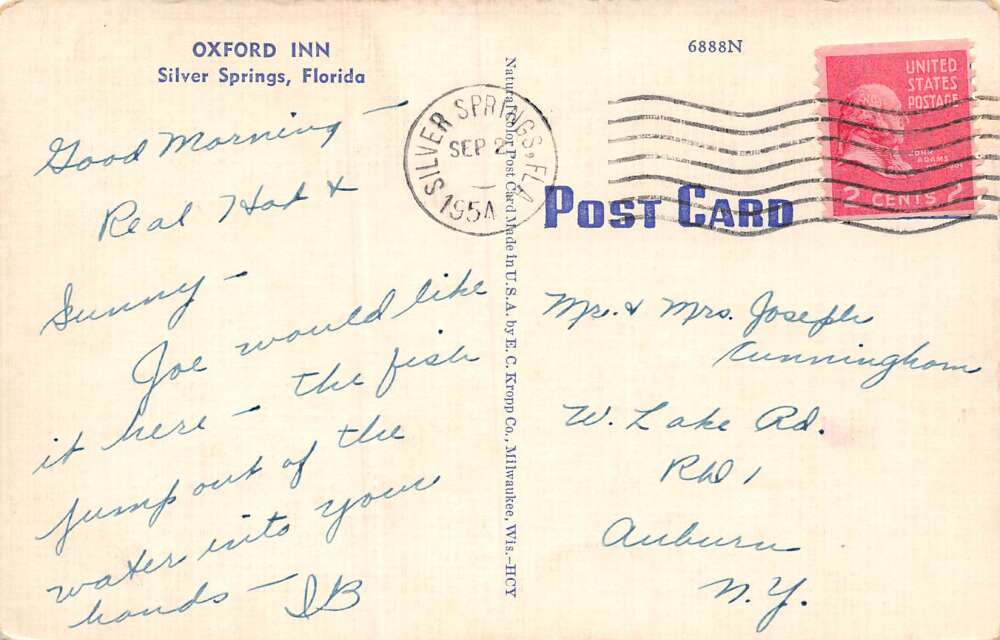 OXFORD INN
Silver Springs, Florida
Good Morning —
Real Hot &
Sunny —
Joe would like
it here — the fish
jump out of the
water into your
hands — IB
Natural Color Post Card Made in U.S.A. by E. C. Kropp Co., Milwaukee, Wis.—HCY
6888N
SILVER SPRINGS, FLA
SEP 2
1954
UNITED
STATES
POSTAGE
JOHN
ADAMS
2 CENTS 2
POST CARD
Mr. & Mrs. Joseph
Cunningham
W. Lake Rd.
RD 1
Auburn
N.Y.